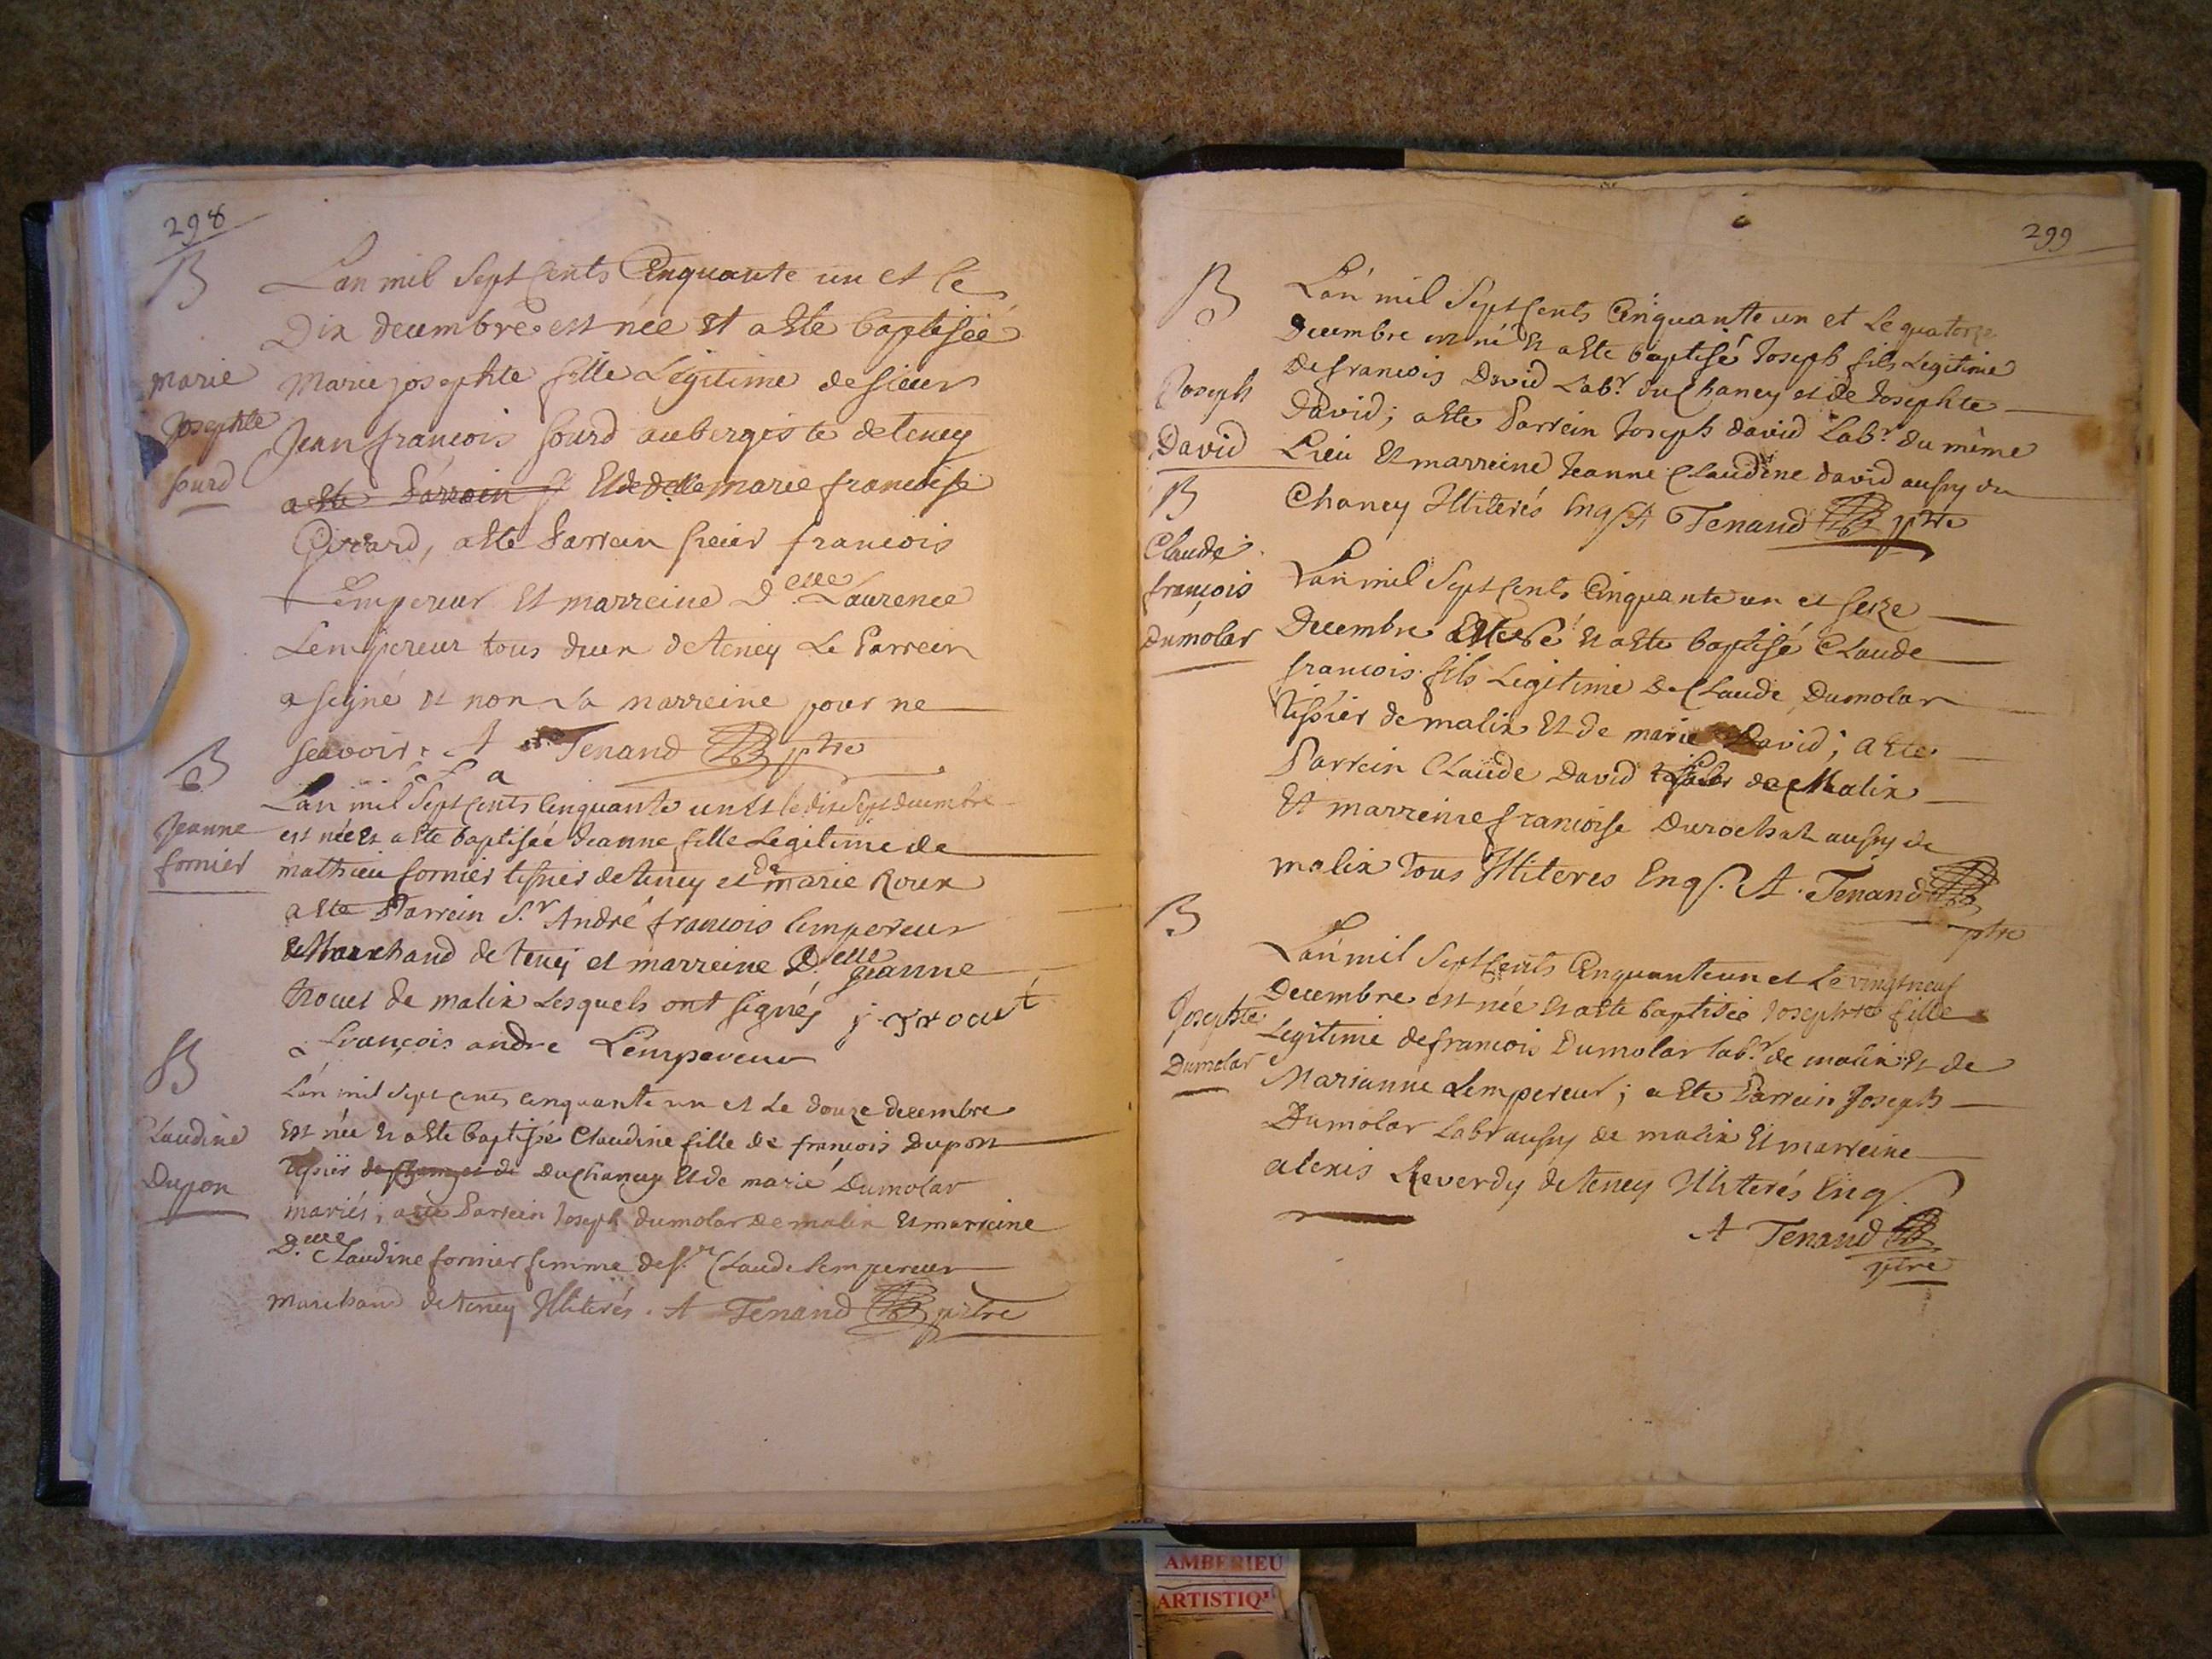 298
B
Lan mil sept cents Cinquante un et le
Dix decembre est née et a este baptisée
marie
Josephte
sourd
Marie josephte fille Legitime de sieur
Jean francois sourd aubergiste de teney
a este Parrain Et de delle marie francoise
Girard, a este Parrein sieur francois
Lempereur Et marreine D.elle Laurence
Lempereur tous deux de teney Le Parrein
a signé et non La marreine pour ne
scavoir. A Tenand ptre
B
Jeanne
fornier
Lan mil sept cents Cinquante un et le dix sept decembre
est née et a este baptisée Jeanne fille Legitime de
mathieu fornier tissier de teney et de marie Roux
a este Parrein S.r André francois Lempereur
Marchand de teney et marreine D.elle Jeanne
trocut de malix Lesquels ont signés j trocut
francois andre Lempereur
B
Claudine
Dupon
Lan mil sept cents cinquante un et Le douze decembre
est née et a este baptisée Claudine fille de francois Dupon
tissier Du Chaney Et de marie Dumolar
mariés, a este Parrein Joseph dumolar de malix Et marreine
D.elle Claudine fornier femme de s.r Claude Lempereur
marchand de teney Illiterés. A Tenand ptre
299
B
Joseph
David
Lan mil sept cents Cinquante un et Le quatorze
Decembre est né et a este baptisé Joseph fils Legitime
De francois David Lab.r du Chaney et de Josephte
David; a este Parrein Joseph david Lab.r du même
Lieu Et marreine Jeanne Claudine david aussy du
Chaney Illiterés Enq. A Tenand ptre
B
Claude
françois
Dumolar
Lan mil sept cents Cinquante un et seize
Decembre est né et a este baptisé Claude
francois fils Legitime de Claude Dumolar
tissier de malix Et de marie David; a este
Parrein Claude David de Malix
Et marreine francoise Durochat aussy de
malix tous Illiteres Enq. A. Tenand
ptre
B
Josephte
Dumolar
Lan mil sept cents Cinquante un et Le vingt neuf
Decembre est née et a este baptisée Josephte fille
Legitime de francois Dumolar lab.r de malix et de
Marianne Lempereur; a este Parrein Joseph
Dumolar Labr aussy de malix Et marreine
alexis Reverdy de teney Illiterés Enq.
A Tenand
ptre
AMBERIEU
ARTISTIQU